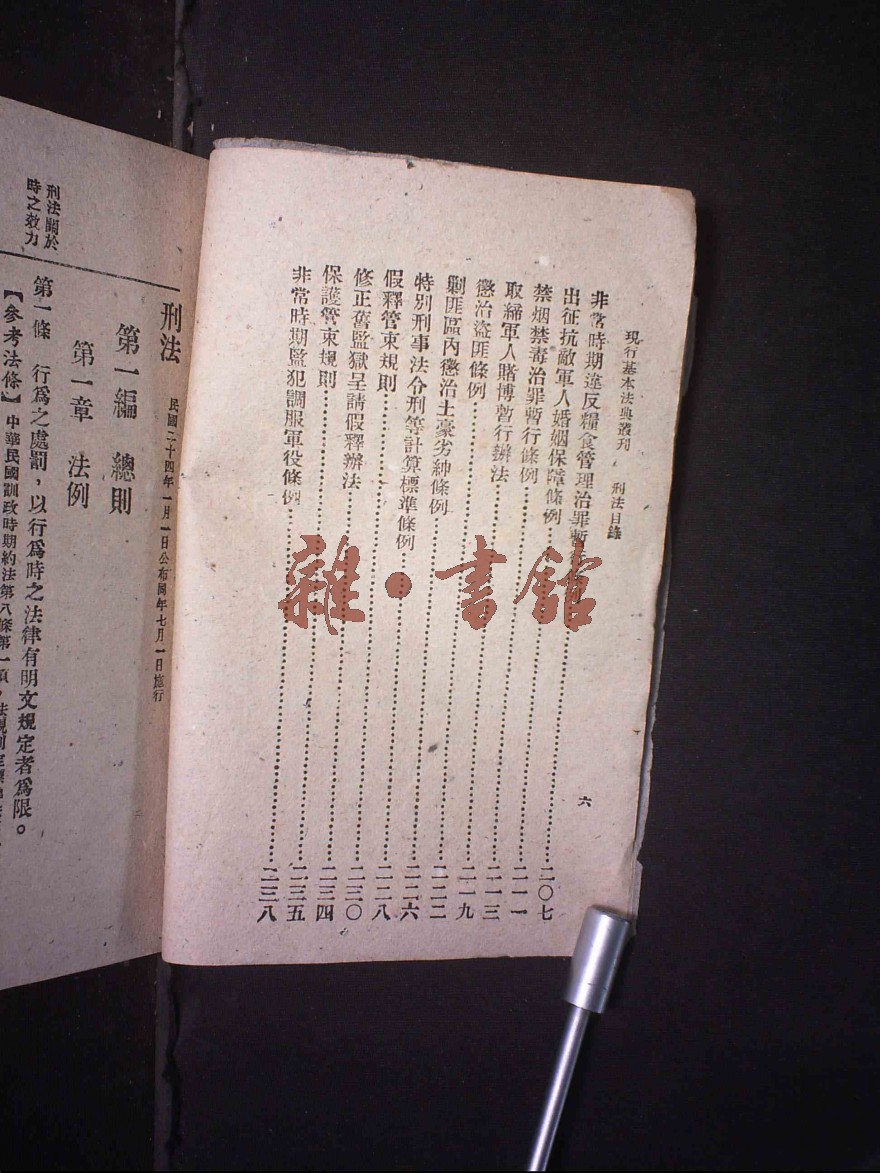 現行基本法典叢刊 刑法目錄 六
非常時期違反糧食管理治罪暫……二〇七
出征抗敵軍人婚姻保障條例……二一一
禁烟禁毒治罪暫行條例……二一三
取締軍人賭博暫行辦法……二一九
懲治盜匪條例……二二二
剿匪區內懲治土豪劣紳條例……二二六
特別刑事法令刑等計算標準條例……二二八
假釋管束規則……二三〇
修正舊監獄呈請假釋辦法……二三四
保護管束規則……二三五
非常時期監犯調服軍役條例……二三八
雜·書館
刑法 民國二十四年一月一日公布同年七月一日施行
第一編 總則
第一章 法例
刑法關於
時之效力
第一條 行爲之處罰，以行爲時之法律有明文規定者爲限。
【參考法條】 中華民國訓政時期約法第八條第一項，